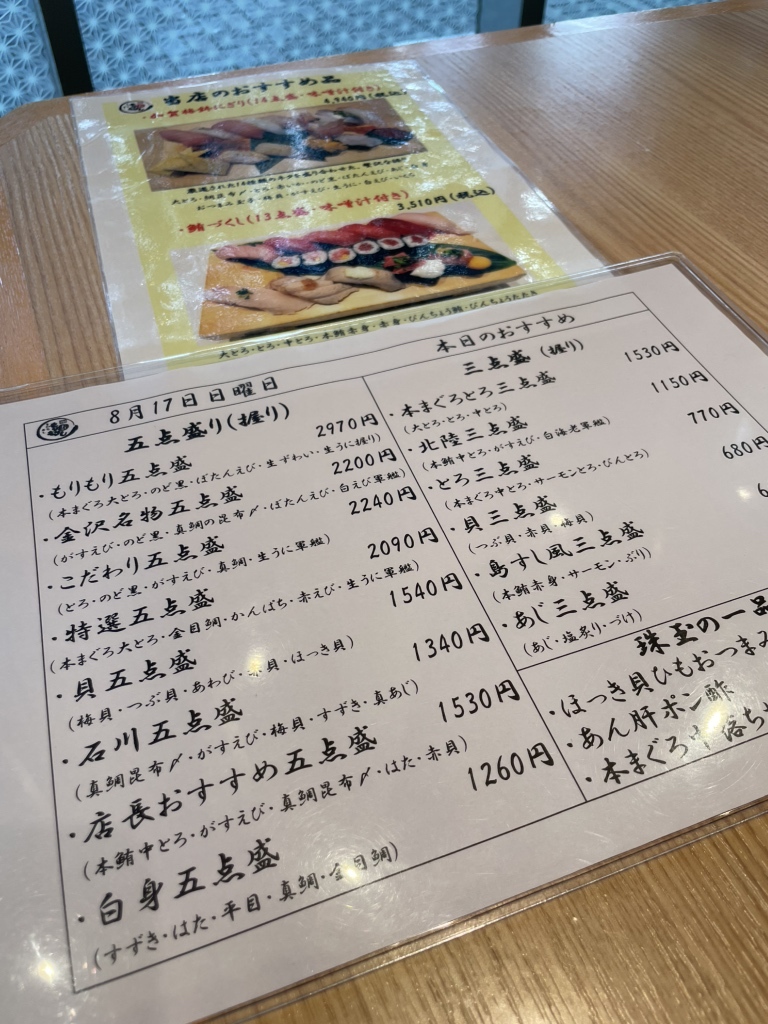 当店のおすすめ
・加賀格鉢にぎり(14点盛・味噌汁付き)
4,960円(税込)
大とろ・
・鮪づくし(13点盛・味噌汁付き)
3,510円(税込)
大とろ・とろ・中とろ・本鮪赤身・びんちょう鮪・びんちょうたたき
8月17日日曜日
本日のおすすめ
五点盛り(握り)
・もりもり五点盛 2970円
(本まぐろ大とろ・のど黒・ぼたんえび・生ずわい・生うに握り)
・金沢名物五点盛 2200円
(がすえび・のど黒・真鯛の昆布〆・ぼたんえび・白えび軍艦)
・こだわり五点盛 2240円
(とろ・のど黒・がすえび・真鯛・生うに軍艦)
・特選五点盛 2090円
(本まぐろ大とろ・金目鯛・かんぱち・赤えび・生うに軍艦)
・貝五点盛 1540円
(梅貝・つぶ貝・あわび・赤貝・ほっき貝)
・石川五点盛 1340円
(真鯛昆布〆・がすえび・梅貝・すずき・真あじ)
・店長おすすめ五点盛 1530円
(本鮪中とろ・がすえび・真鯛昆布〆・はた・赤貝)
・白身五点盛 1260円
(すずき・はた・平目・真鯛・金目鯛)
三点盛(握り)
・本まぐろとろ三点盛 1530円
(大とろ・とろ・中とろ)
・北陸三点盛 1150円
(本鮪中とろ・がすえび・白海老軍艦)
・とろ三点盛 770円
(本まぐろ中とろ・サーモンとろ・びんとろ)
・貝三点盛 680円
(つぶ貝・赤貝・梅貝)
・島すし風三点盛 6
(本鮪赤身・サーモン・ぶり)
・あじ三点盛
(あじ・塩炙り・づけ)
珠玉の一品
・ほっき貝ひもおつまみ
・あん肝ポン酢
・本まぐろ中落ち